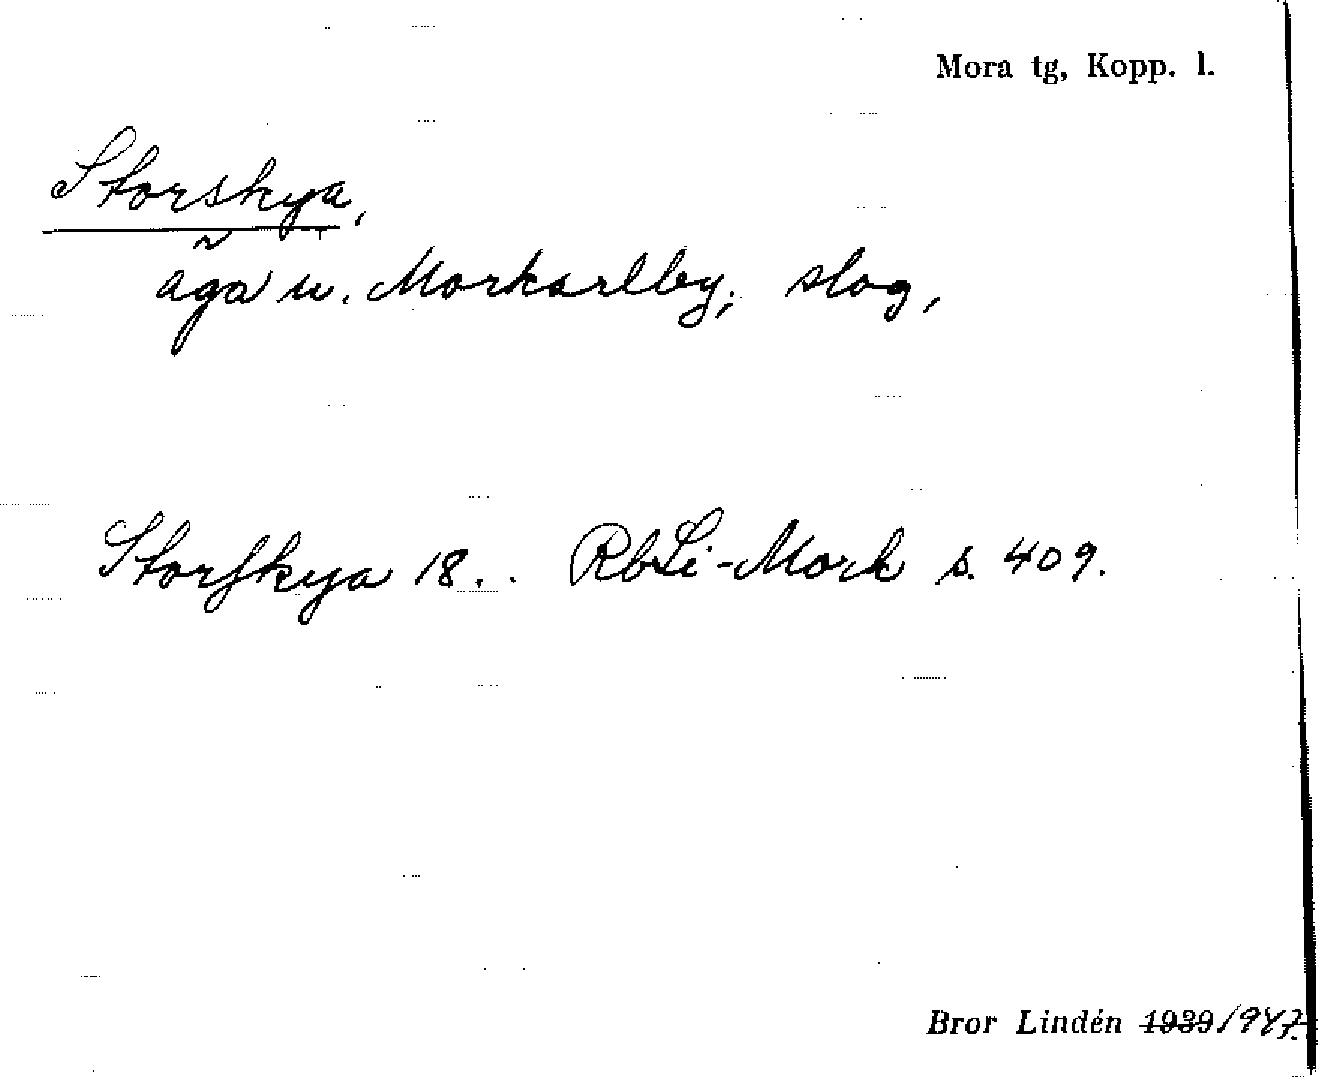 Mora tg, Kopp. l.
Storskya,
äga u. Morkarlby; slog,
Storskya 18.. RbSi-Mork s. 409.
Bror Lindén 1939 1947.